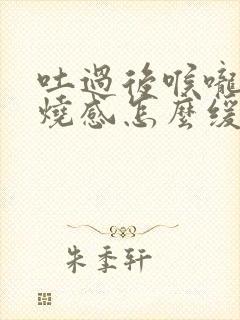 吐過後喉嚨
燒感怎麼緩
朱季轩